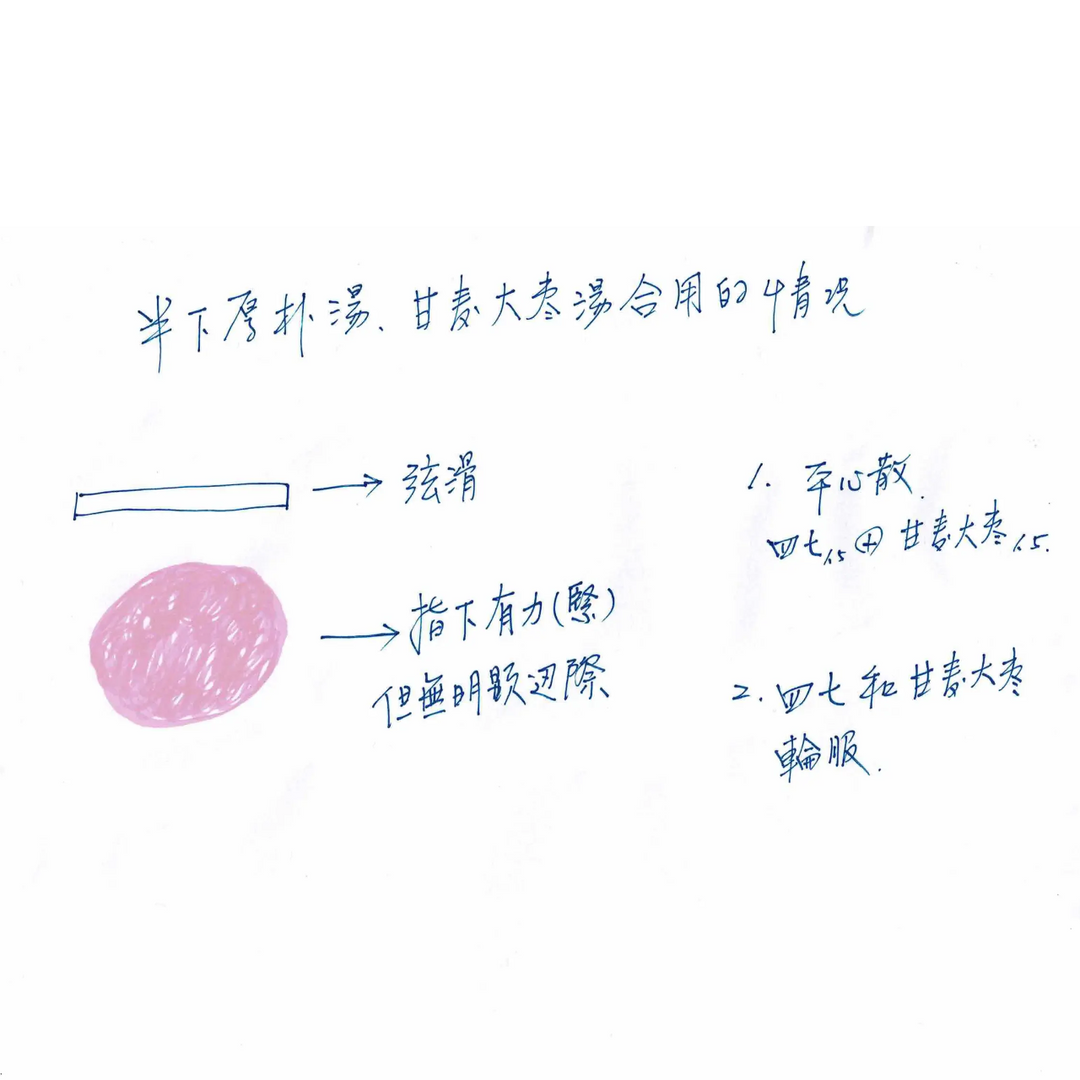 半下厚朴湯、甘麦大枣湯合用的情況
→弦滑
→指下有力(緊)
但無明顕辺際
1. 平心散.
四七1.5⊕甘麦大枣1.5.
2. 四七和甘麦大枣
輪服.